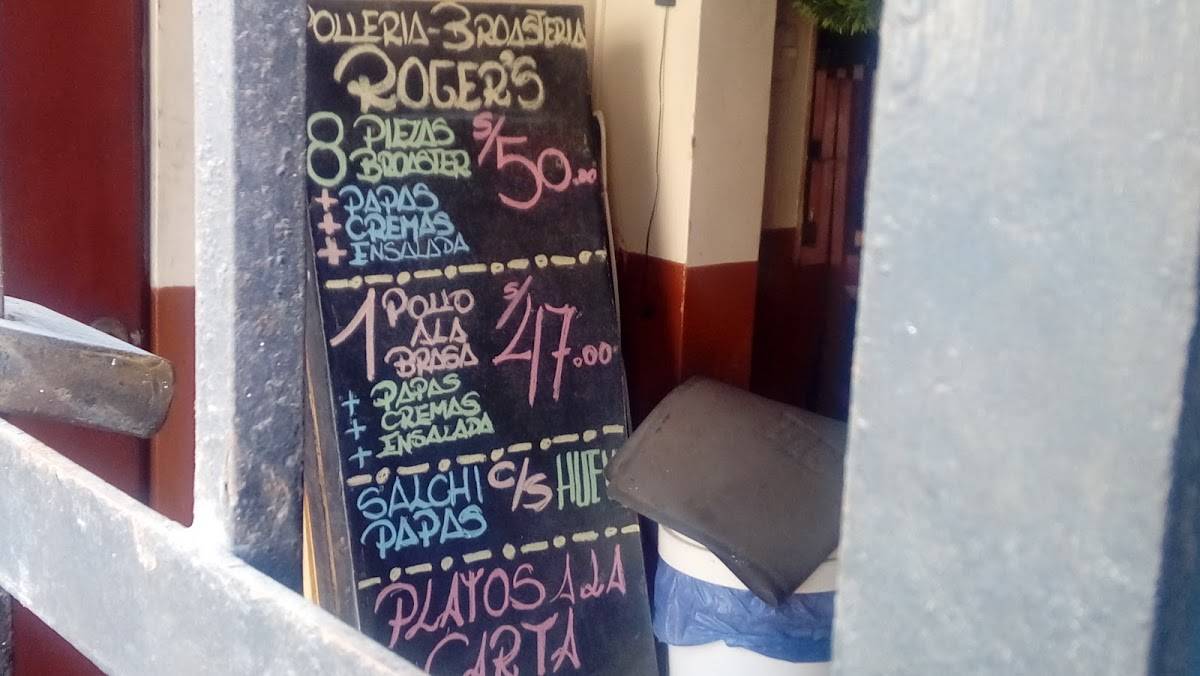 POLLERIA-BROASTERIA
ROGER'S
8 PIEZAS BROASTER S/50.00
+ PAPAS
+ CREMAS
+ ENSALADA
1 POLLO A LA BRASA S/47.00
+ PAPAS
+ CREMAS
+ ENSALADA
SALCHI PAPAS C/S
PLATOS A LA
CARTA